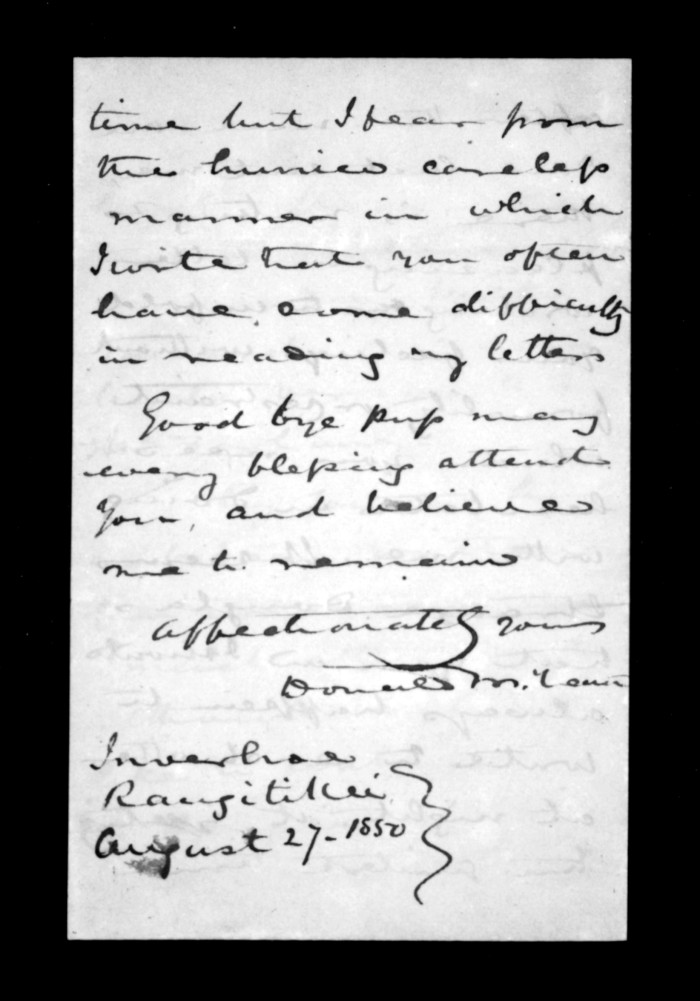 time but I fear from
the hurried careless
manner in which
I write that you often
have some difficulty
in reading my letters
Good bye may
every blessing attend
you, and believe
me to remain
affectionately yours
Donald McLean
Rangitikei
August 27 - 1850